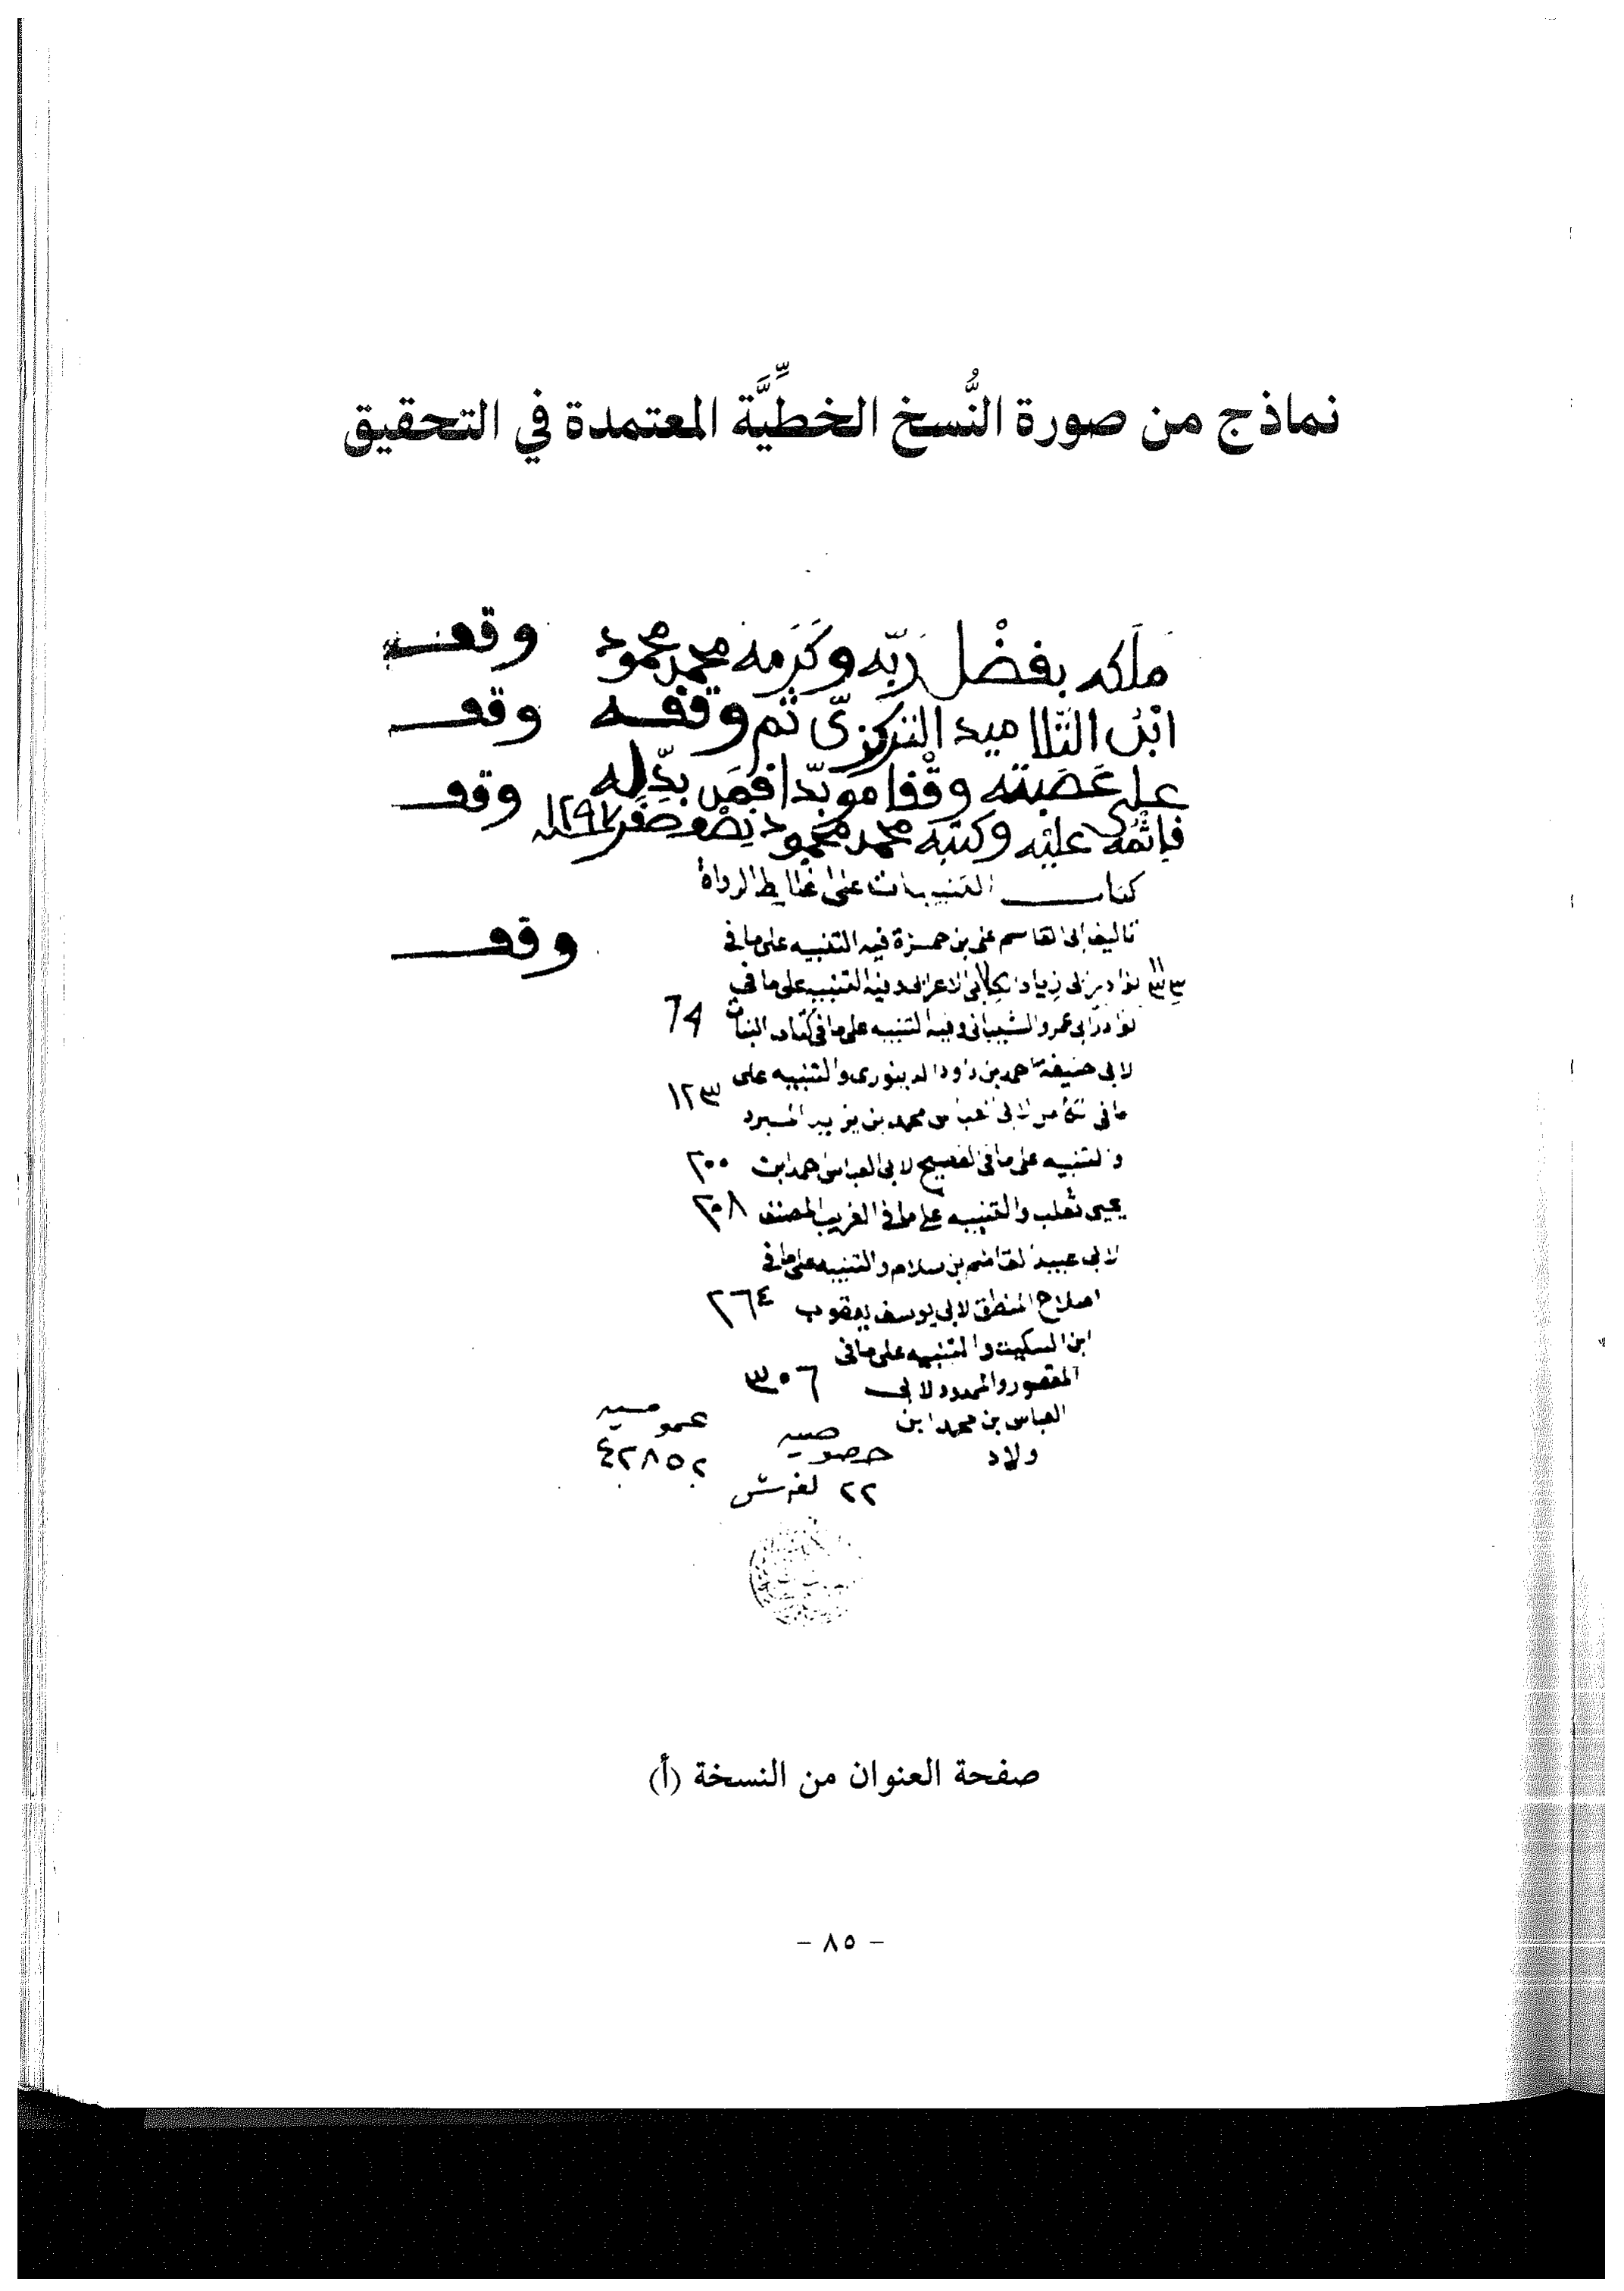 نماذج من صورة النُّسخ الخطِّيَّة المعتمدة في التحقيق
مَلَكه بفضْل رَبّه وكَرَمه محمد محمود وقف
ابْنُ التّلاميد التركزىّ ثم وقفه وقف
على عَصَبته وقْفا موبّدا فمَن بدّله وقف
فإثْمُه عليْه وكتبَه محمد محمود صفَر ١٢٩٧
كتاب التنبيهات على اغاليط الرواة
تاليف ابى القاسم على بن حمزة فيه التنبيه على ما فى وقف
نوادر ابى زياد الكلابى الاعرابى وفيه التنبيه على ما فى
نوادر ابى عمرو الشيبانى وفيه التنبيه على ما فى كتاب النبات 74
لابى حنيفة احمد بن داود الدينورى والتنبيه على
ما فى الكامل لابى العباس محمد بن يزيد المبرد ١٢٣
والتنبيه على ما فى الفصيح لابى العباس احمد ابن ٢٠٠
يحيى ثعلب والتنبيه على ما فى الغريب المصنف ٢٠٨
لابى عبيد القاسم بن سلام والتنبيه على ما فى
اصلاح المنطق لابى يوسف يعقوب ٢٦٤
ابن السكيت والتنبيه على ما فى
المقصور والممدود لابى ٣٠٦
العباس بن محمد ابن
ولاد خصوصيه عموميه
٢٢ لغه ش ٤٢٨٥٢
صفحة العنوان من النسخة (أ)
- ٨٥ -